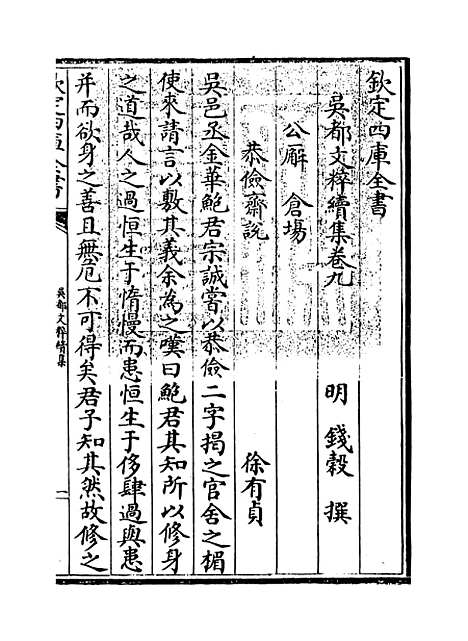 欽定四庫全書
吳都文粹續集卷九
明 錢穀 撰
公廨 倉場
恭儉齋說
徐有貞
吳邑丞金華鮑君宗誠嘗以恭儉二字揭之官舍之楣
使來請言以敷其義余為之嘆曰鮑君其知所以修身
之道哉人之過恒生于惰慢而患恒生于侈肆過與患
并而欲身之善且無危不可得矣君子知其然故修之
欽定四庫全書
吳都文粹續集
一